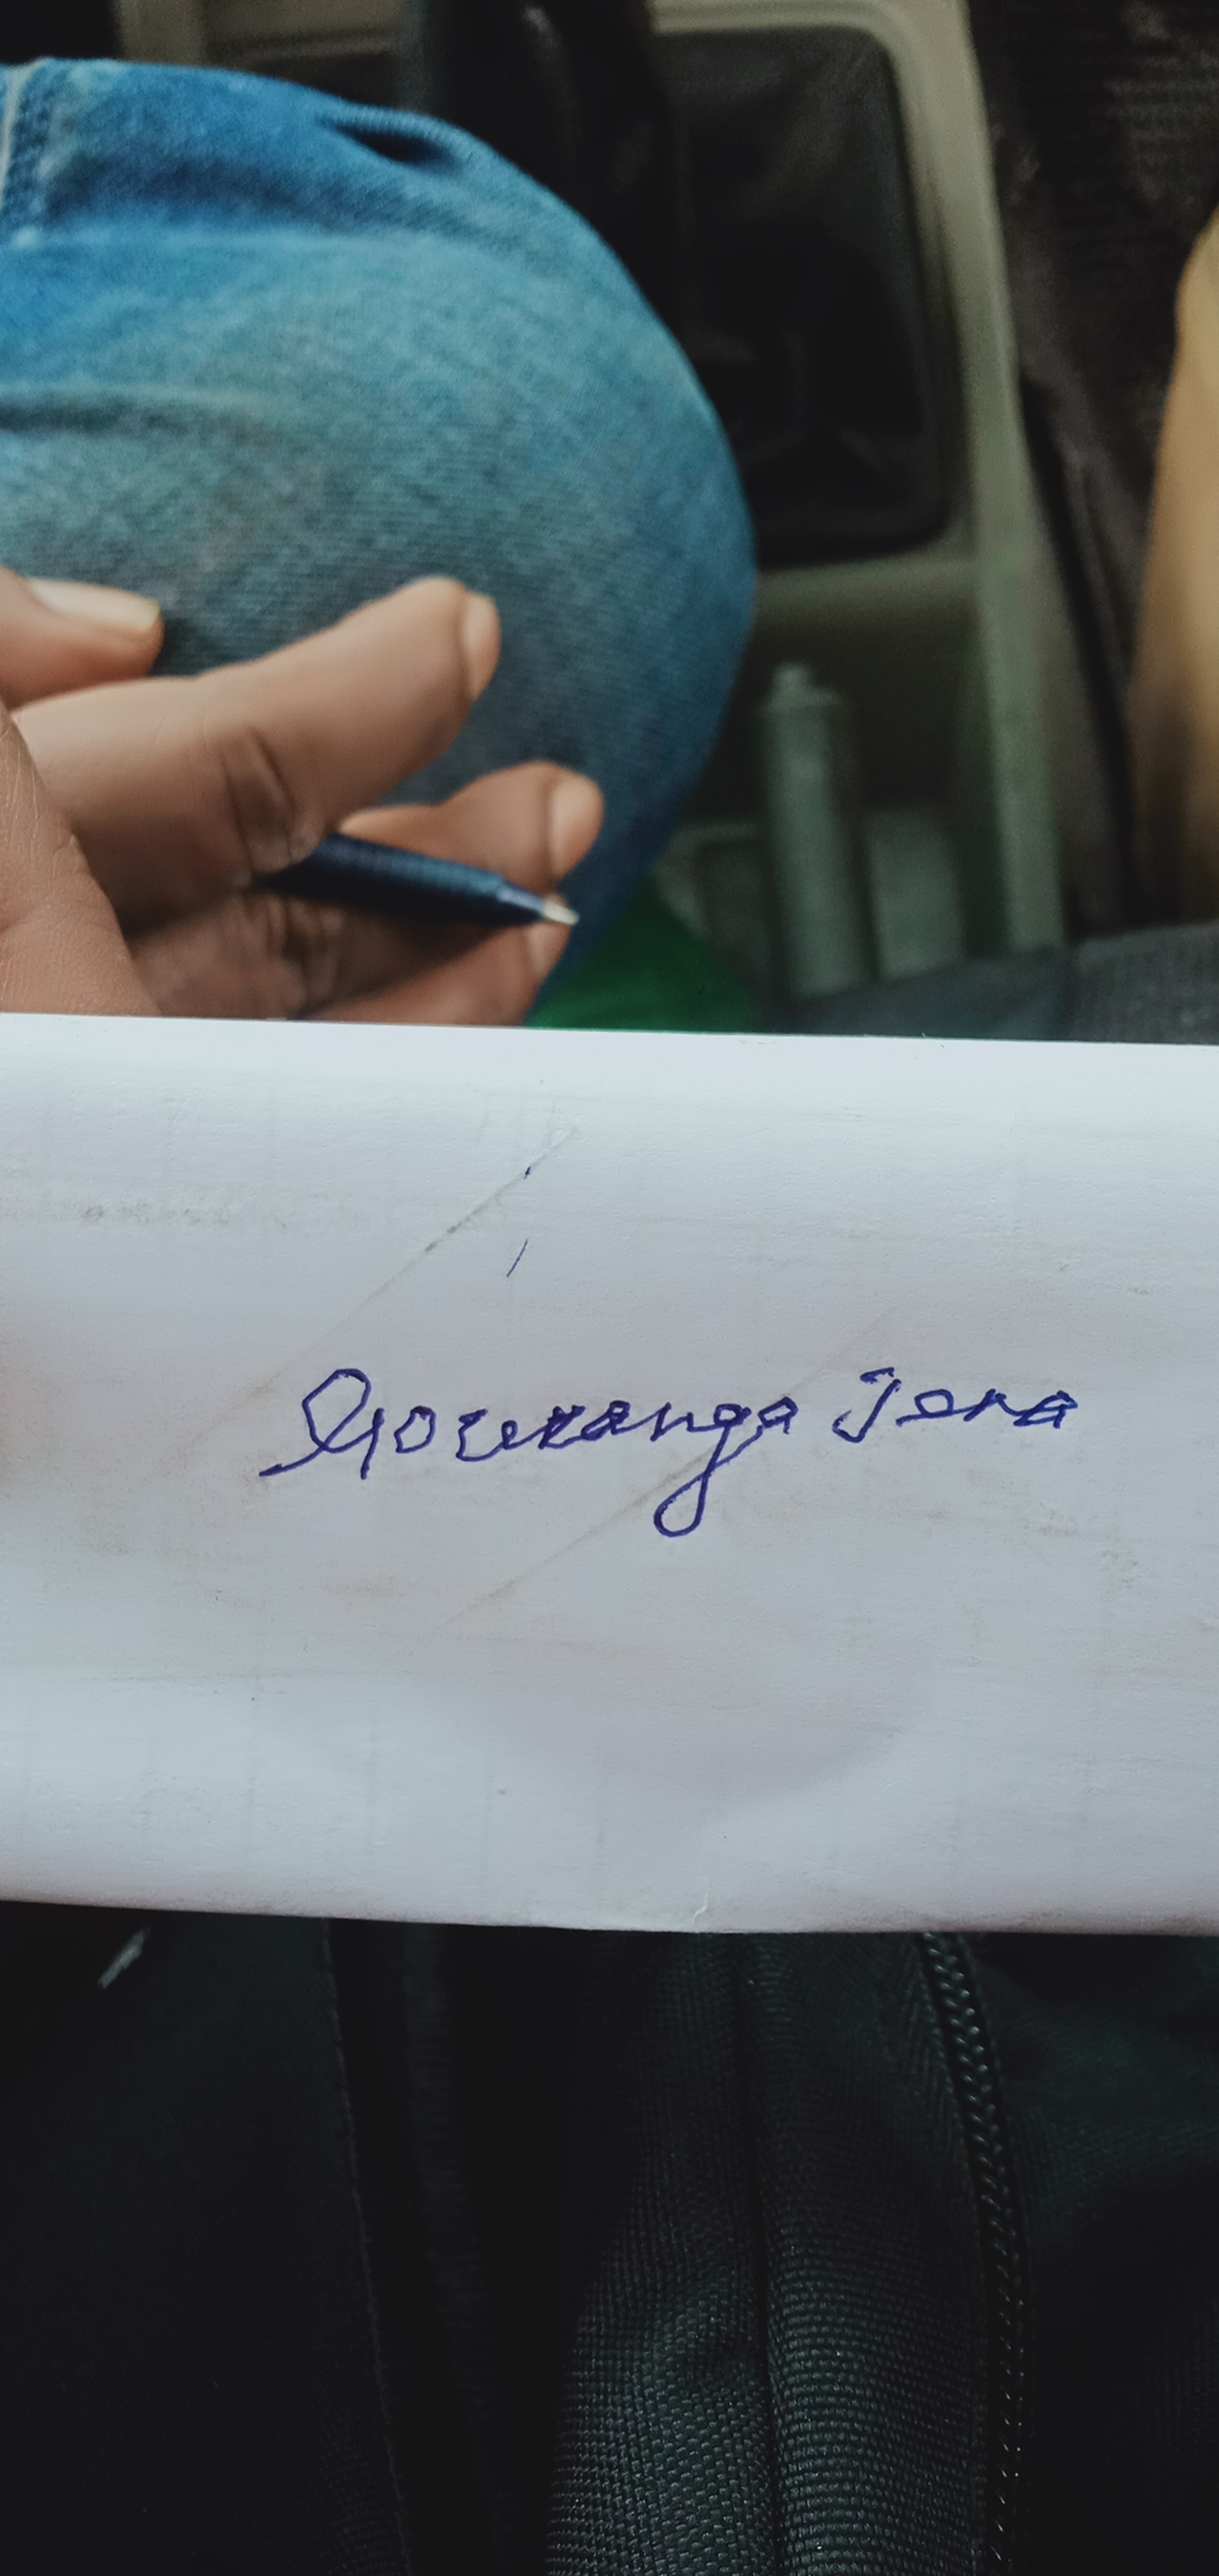 Gouranga Jena